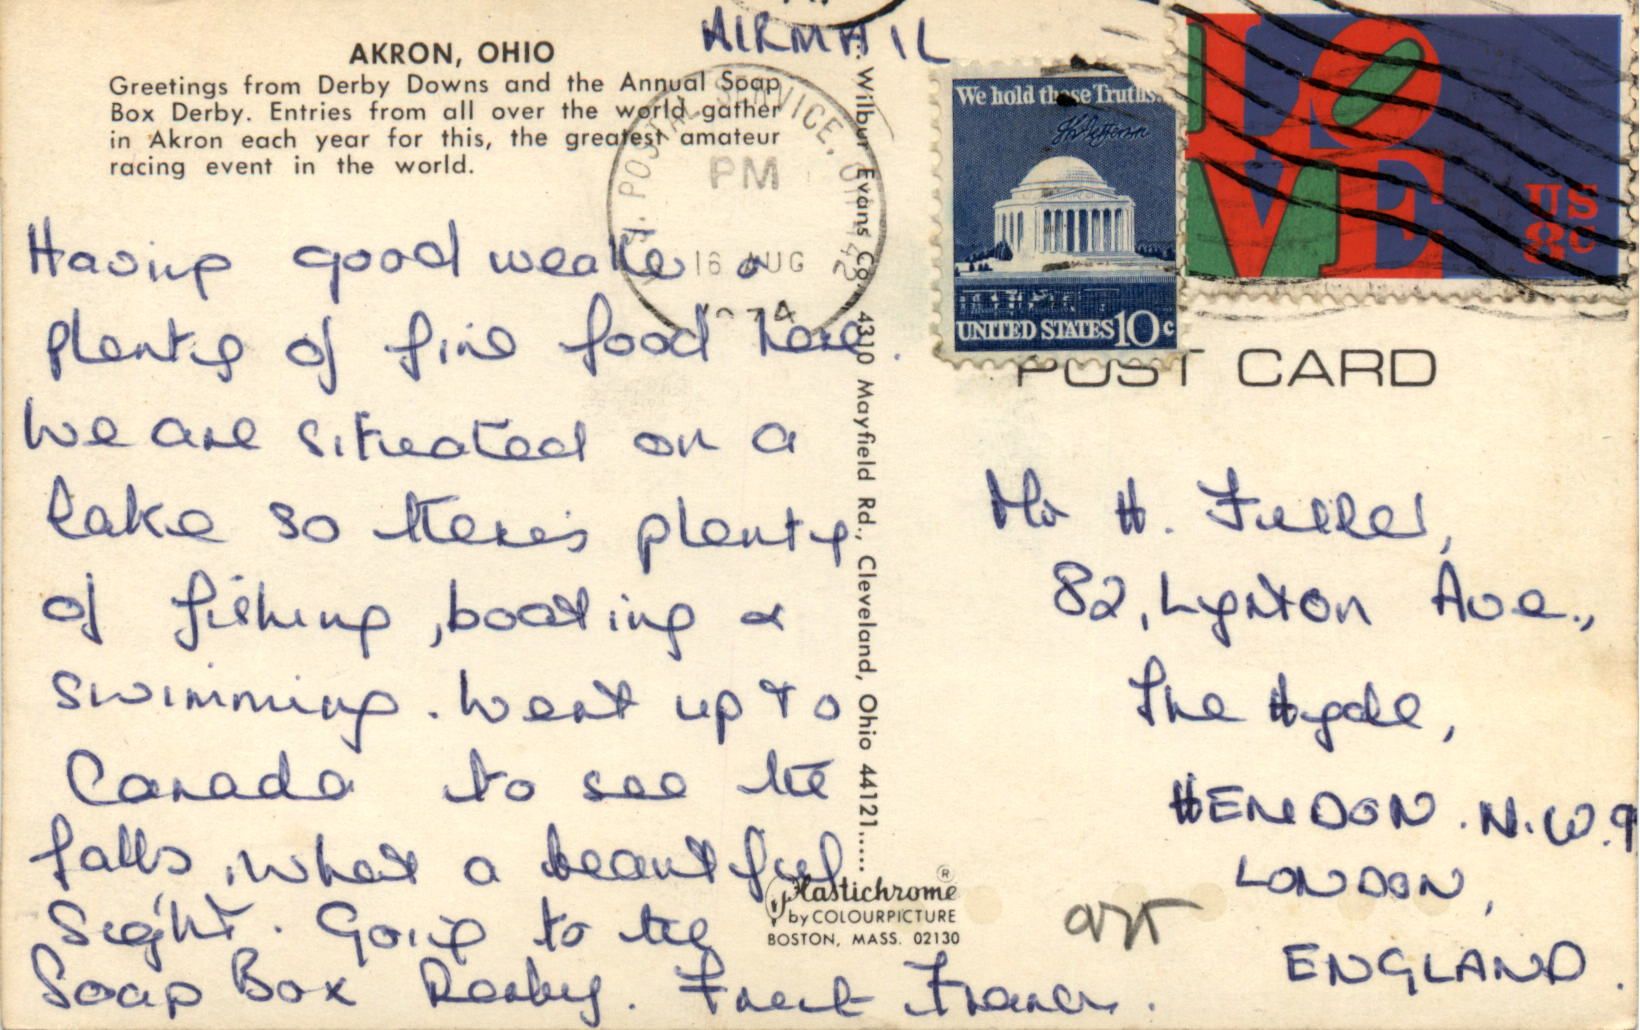 AIRMAIL
AKRON, OHIO
Greetings from Derby Downs and the Annual Soap
Box Derby. Entries from all over the world gather
in Akron each year for this, the greatest amateur
racing event in the world.
U.S. POSTAL SERVICE, OH 442
PM
16 AUG
1974
Having good weather &
plenty of fine food here.
We are situated on a
lake so there's plenty
of fishing, boating &
swimming. Went up to
Canada to see the
falls, what a beautiful
sight. Going to the
Soap Box Derby.
Wilbur Evans Co., 4310 Mayfield Rd., Cleveland, Ohio 44121....
Plastichrome ®
by COLOURPICTURE
BOSTON, MASS. 02130
We hold these Truths...
Th Jefferson
UNITED STATES 10c
LOVE
US
8c
POST CARD
Mr H. Fuller,
82, Lynton Ave.,
The Hyde,
HENDON. N.W.9
LONDON,
ENGLAND.